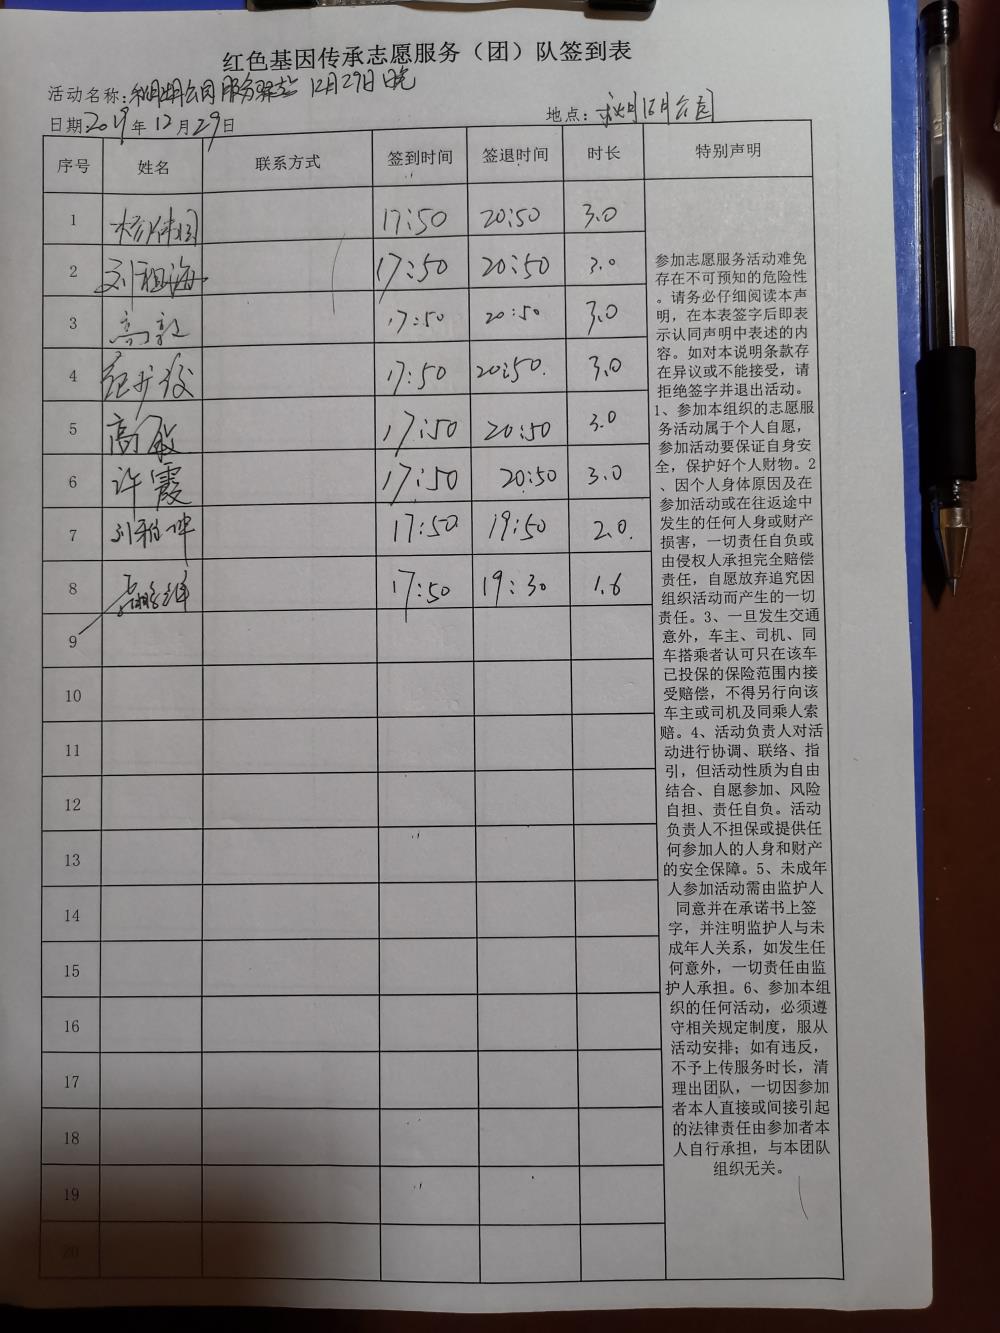 红色基因传承志愿服务（团）队签到表
活动名称：公园服务 12月29日晚
日期2019年12月29日
地点：公园
序号 姓名 联系方式 签到时间 签退时间 时长 特别声明
1 17:50 20:50 3.0
2 刘祖海 17:50 20:50 3.0
3 17:50 20:50 3.0
4 17:50 20:50. 3.0
5 高敏 17:50 20:50 3.0
6 许霞 17:50 20:50 3.0
7 17:50 19:50 2.0.
8 17:50 19:30 1.6
9
10
11
12
13
14
15
16
17
18
19
20
参加志愿服务活动难免
存在不可预知的危险性
。请务必仔细阅读本声
明，在本表签字后即表
示认同声明中表述的内
容。如对本说明条款存
在异议或不能接受，请
拒绝签字并退出活动。
1、参加本组织的志愿服
务活动属于个人自愿，
参加活动要保证自身安
全，保护好个人财物。2
、因个人身体原因及在
参加活动或在往返途中
发生的任何人身或财产
损害，一切责任自负或
由侵权人承担完全赔偿
责任，自愿放弃追究因
组织活动而产生的一切
责任。3、一旦发生交通
意外，车主、司机、同
车搭乘者认可只在该车
已投保的保险范围内接
受赔偿，不得另行向该
车主或司机及同乘人索
赔。4、活动负责人对活
动进行协调、联络、指
引，但活动性质为自由
结合、自愿参加、风险
自担、责任自负。活动
负责人不担保或提供任
何参加人的人身和财产
的安全保障。5、未成年
人参加活动需由监护人
同意并在承诺书上签
字，并注明监护人与未
成年人关系，如发生任
何意外，一切责任由监
护人承担。6、参加本组
织的任何活动，必须遵
守相关规定制度，服从
活动安排；如有违反，
不予上传服务时长，清
理出团队，一切因参加
者本人直接或间接引起
的法律责任由参加者本
人自行承担，与本团队
组织无关。